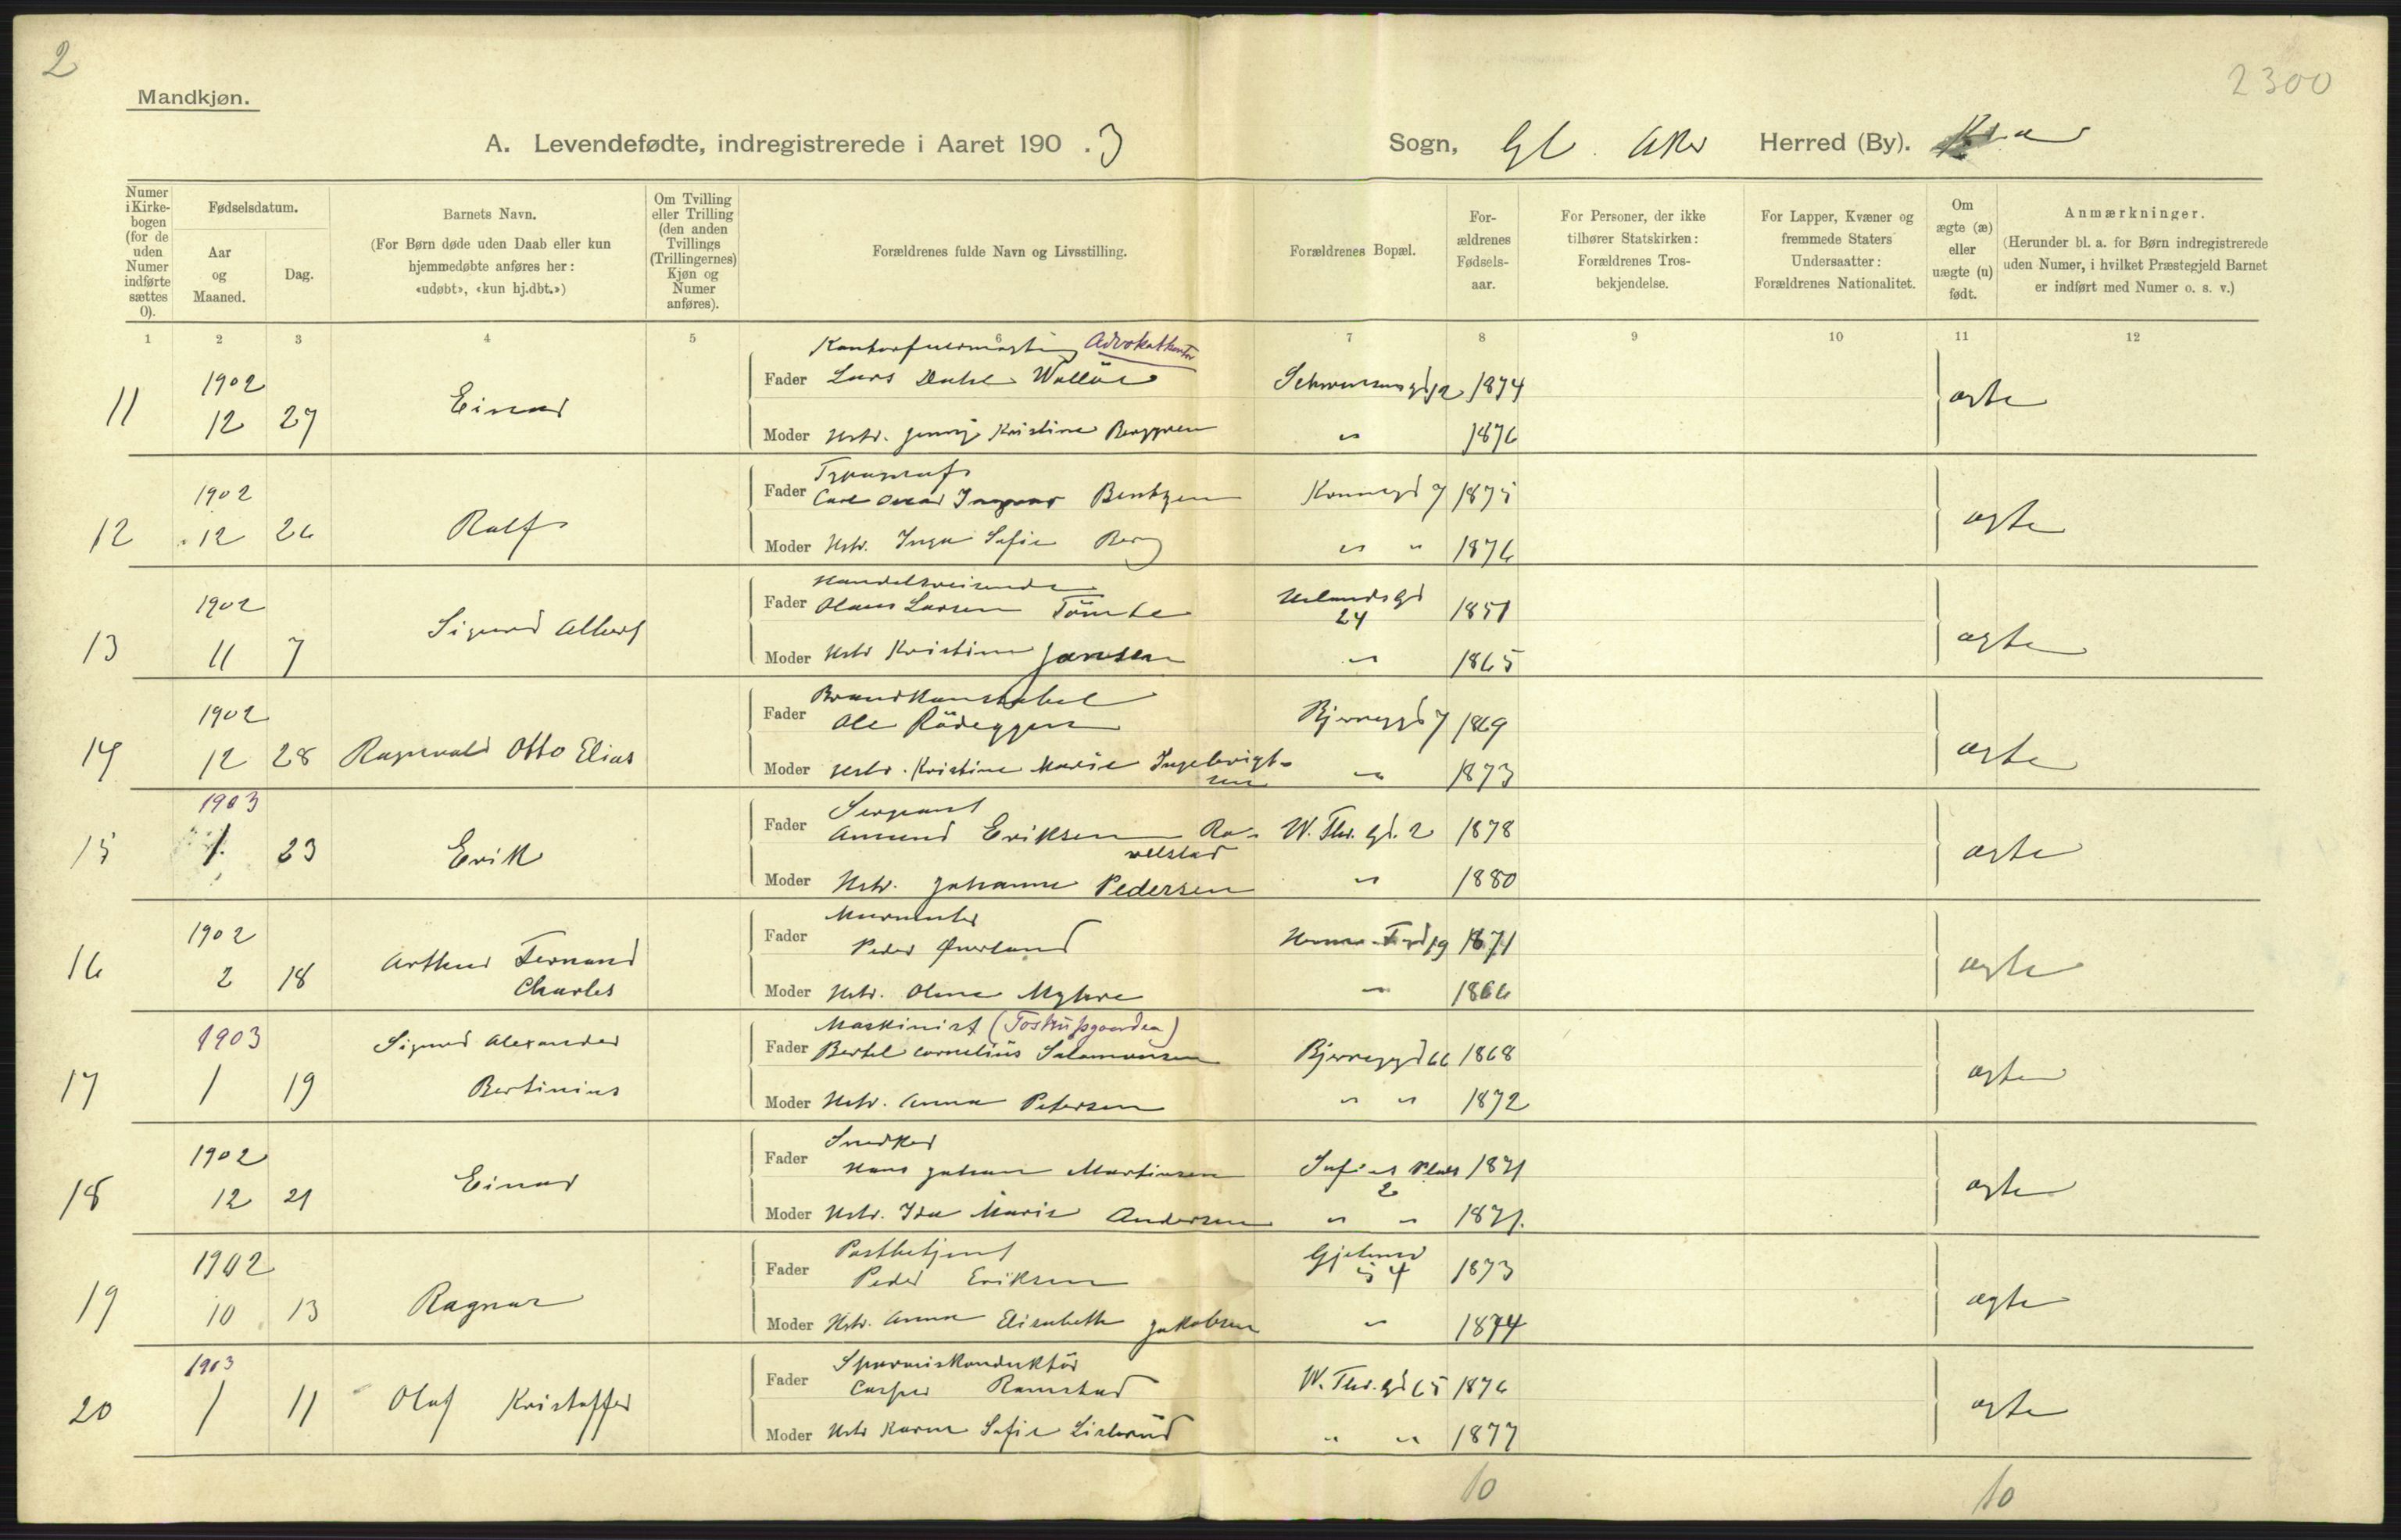 2
2300
Mandkjøn.
A. Levendefødte, indregistrerede i Aaret 190 . 3
Sogn, Gl. Aker Herred (By). Kra
Numer i Kirkebogen (for de uden Numer indførte sættes 0).
Fødselsdatum.
Aar og Maaned.
Dag.
Barnets Navn.
(For Børn døde uden Daab eller kun hjemmedøbte anføres her: «udøbt», «kun hj.dbt.»)
Om Tvilling eller Trilling (den anden Tvillings (Trillingernes) Kjøn og Numer anføres).
Forældrenes fulde Navn og Livsstilling.
Forældrenes Bopæl.
Forældrenes Fødselsaar.
For Personer, der ikke tilhører Statskirken: Forældrenes Trosbekjendelse.
For Lapper, Kvæner og fremmede Staters Undersaatter: Forældrenes Nationalitet.
Om ægte (æ) eller uægte (u) født.
Anmærkninger.
(Herunder bl. a. for Børn indregistrerede uden Numer, i hvilket Præstegjeld Barnet er indført med Numer o. s. v.)
1 2 3 4 5 6 7 8 9 10 11 12
Advokatkontor
11 1902 12 27 Einar
Fader Lars Dahl 1874 ægte
Moder Hstr. Jenny Kristine Berggren " 1876
Typograf
12 1902 12 26 Ralf
Fader Carl Oscar Ingvar Bentzen 7 1875 ægte
Moder Hstr. Inga Sofie Berg " " 1876
Handelsreisende
13 1902 11 7 Sigurd Albert
Fader Olaus Larsen Tömte Uelands Gd 24 1851 ægte
Moder Hstr Kristine Jansen " 1865
Brandkonstabel
14 1902 12 28 Ragnvald Otto Elias
Fader Ole Rödeggen Bjerreggd 7 1869 ægte
Moder Hstr. Kristine Marie Ingebrigtsen " 1873
Sergeant
15 1903 1 23 Erik
Fader Amund Eriksen W. Thr. gd. 2 1878 ægte
Moder Hstr. Johanne Pedersen " 1880
16 1902 2 18 Arthur Fernand Charles
Fader Peder Øverland 1871 ægte
Moder Hstr. Oline Myhre " 1866
Maskinist (Tostrupgaarden)
17 1903 1 19 Sigurd Alexander Bertinius
Fader Bertel Cornelius Salomonsen Bjerreggd 66 1868 ægte
Moder Hstr. Anna Petersen " " 1872
Snedker
18 1902 12 21 Einar
Fader Hans Johan Martinsen Sofies Plads 2 1871 ægte
Moder Hstr. Ida Marie Andersen " " 1871.
Postbetjent
19 1902 10 13 Ragnar
Fader Peder Eriksen 1873 ægte
Moder Hstr. Anna Elisabeth Jakobsen " 1874
Sporveiskonduktör
20 1903 1 11 Olaf Kristoffer
Fader Casper Ramstad W. Thr. gd 65 1876 ægte
Moder Hstr Karen Sofie " " 1877
10 10